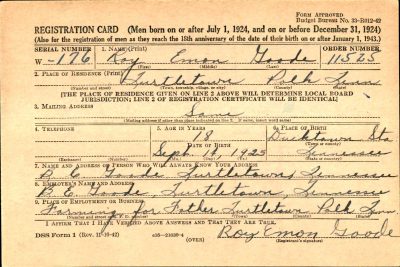 FORM APPROVED
Budget Bureau No. 33-R012-42
REGISTRATION CARD (Men born on or after July 1, 1924, and on or before December 31, 1924)
(Also for the registration of men as they reach the 18th anniversary of the date of their birth on or after January 1, 1943.)
SERIAL NUMBER 1. NAME (Print) ORDER NUMBER
W-176 Roy Emon Goode 11525
(First) (Middle) (Last)
2. PLACE OF RESIDENCE (Print)
Turtletown Polk Tenn
(Number and street) (Town, township, village, or city) (County) (State)
[THE PLACE OF RESIDENCE GIVEN ON LINE 2 ABOVE WILL DETERMINE LOCAL BOARD
JURISDICTION; LINE 2 OF REGISTRATION CERTIFICATE WILL BE IDENTICAL]
3. MAILING ADDRESS
Same
[Mailing address if other than place indicated on line 2. If same, insert word same]
4. TELEPHONE 5. AGE IN YEARS 6. PLACE OF BIRTH
18 Ducktown Sta
DATE OF BIRTH
Sept. 19 1925 Tennessee
(Exchange) (Number) (Mo.) (Day) (Yr.) (State or country)
7. NAME AND ADDRESS OF PERSON WHO WILL ALWAYS KNOW YOUR ADDRESS
B. C. Goode, Turtletown, Tennessee
8. EMPLOYER'S NAME AND ADDRESS
B. C. Goode, Turtletown, Tennessee
9. PLACE OF EMPLOYMENT OR BUSINESS
Farming for Father Turtletown Polk Tenn.
(Number and street or R. F. D. number) (Town) (County) (State)
I AFFIRM THAT I HAVE VERIFIED ABOVE ANSWERS AND THAT THEY ARE TRUE.
DSS Form 1 (Rev. 11-16-42) (OVER) Roy Emon Goode
(Registrant's signature)